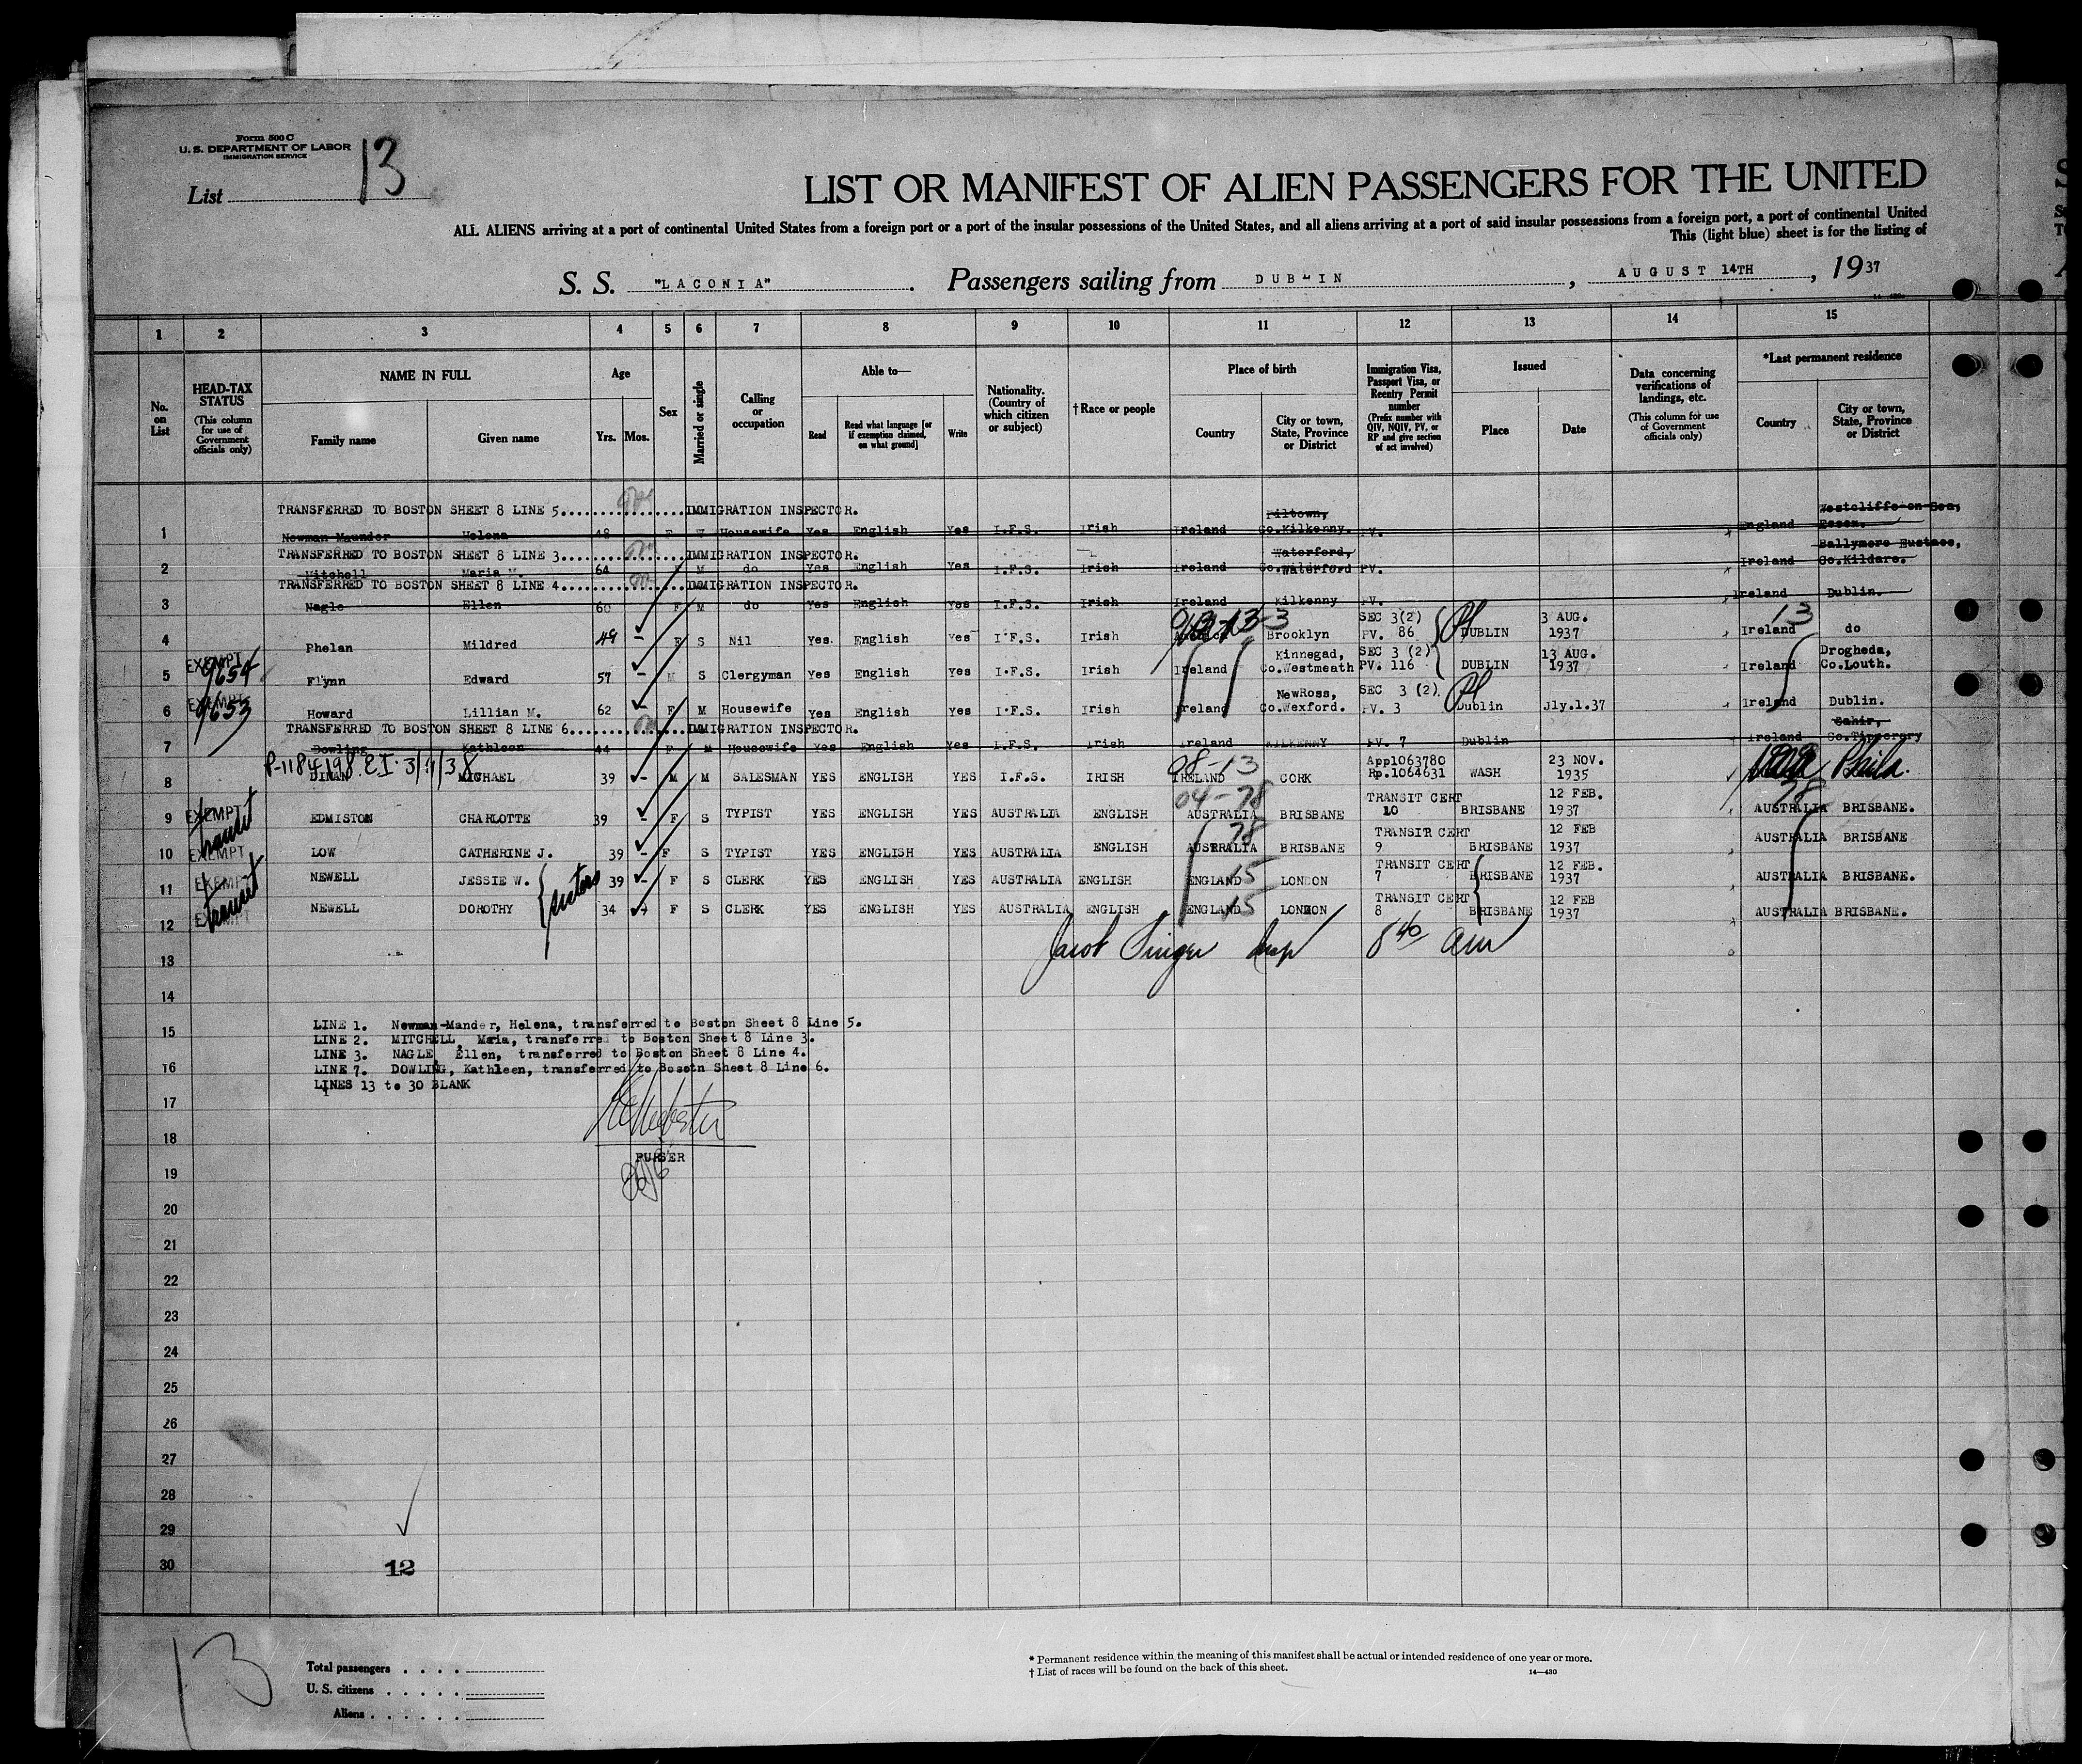 Form 500 C
U. S. DEPARTMENT OF LABOR
IMMIGRATION SERVICE
List 13
LIST OR MANIFEST OF ALIEN PASSENGERS FOR THE UNITED
ALL ALIENS arriving at a port of continental United States from a foreign port or a port of the insular possessions of the United States, and all aliens arriving at a port of said insular possessions from a foreign port, a port of continental United
This (light blue) sheet is for the listing of
S. S. "LACONIA". Passengers sailing from DUBLIN, AUGUST 14TH, 1937
1 2 3 4 5 6 7 8 9 10 11 12 13 14 15
No. on List
HEAD-TAX STATUS (This column for use of Government officials only)
NAME IN FULL
Family name Given name
Age
Yrs. Mos.
Sex
Married or single
Calling or occupation
Able to—
Read Read what language [or if exemption claimed, on what ground] Write
Nationality. (Country of which citizen or subject)
†Race or people
Place of birth
Country City or town, State, Province or District
Immigration Visa, Passport Visa, or Reentry Permit number (Prefix number with QIV, NQIV, PV, or RP and give section of act involved)
Issued
Place Date
Data concerning verifications of landings, etc. (This column for use of Government officials only)
*Last permanent residence
Country City or town, State, Province or District
TRANSFERRED TO BOSTON SHEET 8 LINE 5..................IMMIGRATION INSPECTOR.
1 Newman Maunder Helena 48 F W Housewife Yes English Yes I.F.S. Irish Ireland Piltown, Co.Kilkenny. PV. England Westcliffe-on-Sea, Essex.
TRANSFERRED TO BOSTON SHEET 8 LINE 3..................IMMIGRATION INSPECTOR.
2 Mitchell Maria V. 64 F M do Yes English Yes I.F.S. Irish Ireland Waterford, Co.Waterford PV. Ireland Ballymore Eustace, Co.Kildare.
TRANSFERRED TO BOSTON SHEET 8 LINE 4..................IMMIGRATION INSPECTOR.
3 Nagle Ellen 60 F M do Yes English Yes I.F.S. Irish Ireland Kilkenny PV. Ireland Dublin.
4 Phelan Mildred 49 - F S Nil Yes English Yes I.F.S. Irish America Brooklyn SEC 3(2) PV. 86 DUBLIN 3 AUG. 1937 Ireland 13 do
5 EXEMPT 9654 Flynn Edward 57 - M S Clergyman Yes English Yes I.F.S. Irish Ireland Kinnegad, Co.Westmeath SEC 3 (2) PV. 116 DUBLIN 13 AUG. 1937 Ireland Drogheda, Co.Louth.
6 EXEMPT 9653 Howard Lillian M. 62 - F M Housewife Yes English Yes I.F.S. Irish Ireland NewRoss, Co.Wexford. SEC 3 (2) PV. 3 Dublin Jly.1.37 Ireland Dublin.
TRANSFERRED TO BOSTON SHEET 8 LINE 6..................IMMIGRATION INSPECTOR.
7 Dowling Kathleen 44 F M Housewife Yes English Yes I.F.S. Irish Ireland KILKENNY PV. 7 Dublin Ireland Cahir, Co.Tipperary
8 DINAN MICHAEL 39 - M M SALESMAN YES ENGLISH YES I.F.S. IRISH 08-13 IRELAND CORK App1063780 Rp.1064631 WASH 23 NOV. 1935 Phila.
9 EXEMPT transit EDMISTON CHARLOTTE 39 - F S TYPIST YES ENGLISH YES AUSTRALIA ENGLISH 04-78 AUSTRALIA BRISBANE TRANSIT CERT 10 BRISBANE 12 FEB. 1937 78 AUSTRALIA BRISBANE.
10 EXEMPT LOW CATHERINE J. 39 - F S TYPIST YES ENGLISH YES AUSTRALIA ENGLISH 78 AUSTRALIA BRISBANE TRANSIT CERT 9 BRISBANE 12 FEB 1937 AUSTRALIA BRISBANE
11 EXEMPT transit NEWELL JESSIE W. sisters 39 - F S CLERK YES ENGLISH YES AUSTRALIA ENGLISH ENGLAND 15 LONDON TRANSIT CERT 7 BRISBANE 12 FEB. 1937 AUSTRALIA BRISBANE.
12 EXEMPT NEWELL DOROTHY 34 - F S CLERK YES ENGLISH YES AUSTRALIA ENGLISH ENGLAND 15 LONDON TRANSIT CERT 8 BRISBANE 12 FEB 1937 AUSTRALIA BRISBANE.
Jacob Singer Insp 8 40 am
13
14
15 LINE 1. Newman-Mander, Helena, transferred to Boston Sheet 8 Line 5.
LINE 2. MITCHELL, Maria, transferred to Boston Sheet 8 Line 3.
LINE 3. NAGLE, Ellen, transferred to Boston Sheet 8 Line 4.
16 LINE 7. DOWLING, Kathleen, transferred to Bosotn Sheet 8 Line 6.
LINES 13 to 30 BLANK
17
18
PURSER
19
20
21
22
23
24
25
26
27
28
29
30 12
13
Total passengers
U. S. citizens
Aliens
* Permanent residence within the meaning of this manifest shall be actual or intended residence of one year or more.
† List of races will be found on the back of this sheet.
14—430